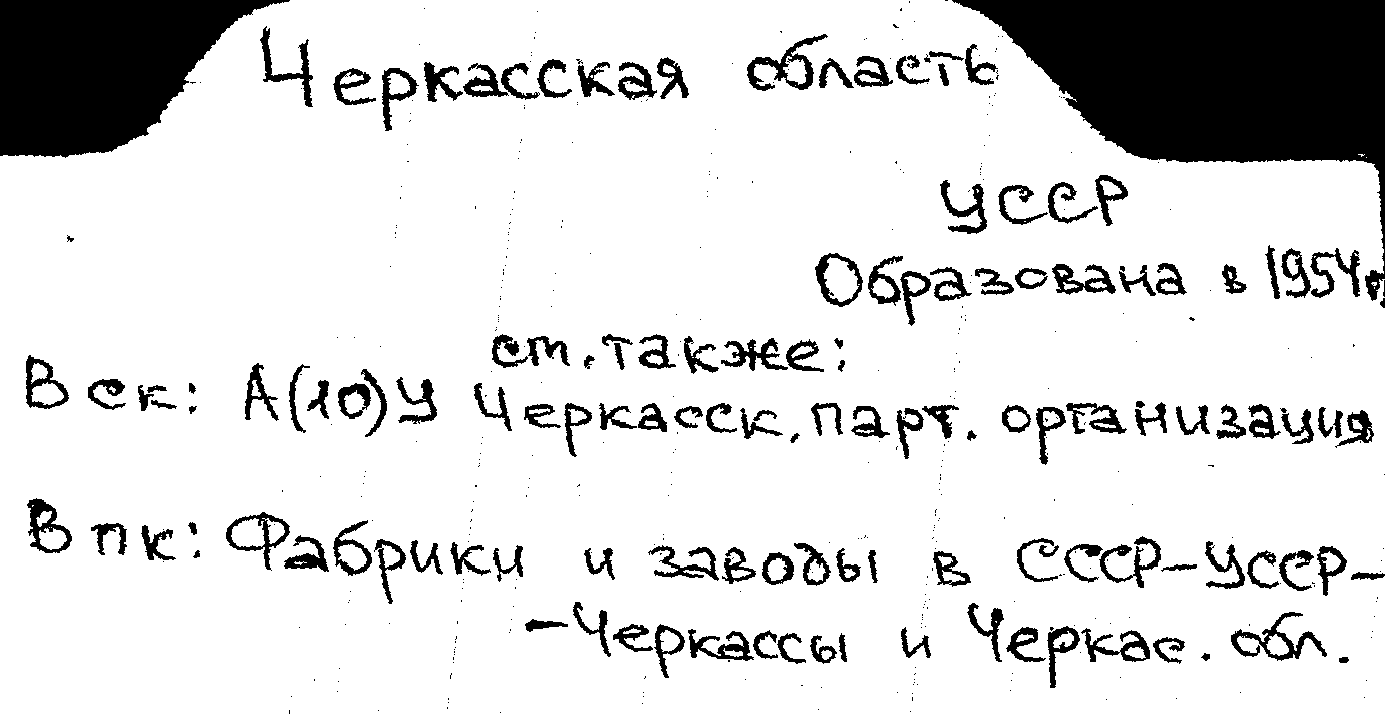 Черкасская область
УССР
Образована в 1954г.
см. также:
В ск: А(10)У Черкасск. парт. организация
В пк: Фабрики и заводы в СССР-УССР-
-Черкассы и Черкас. обл.